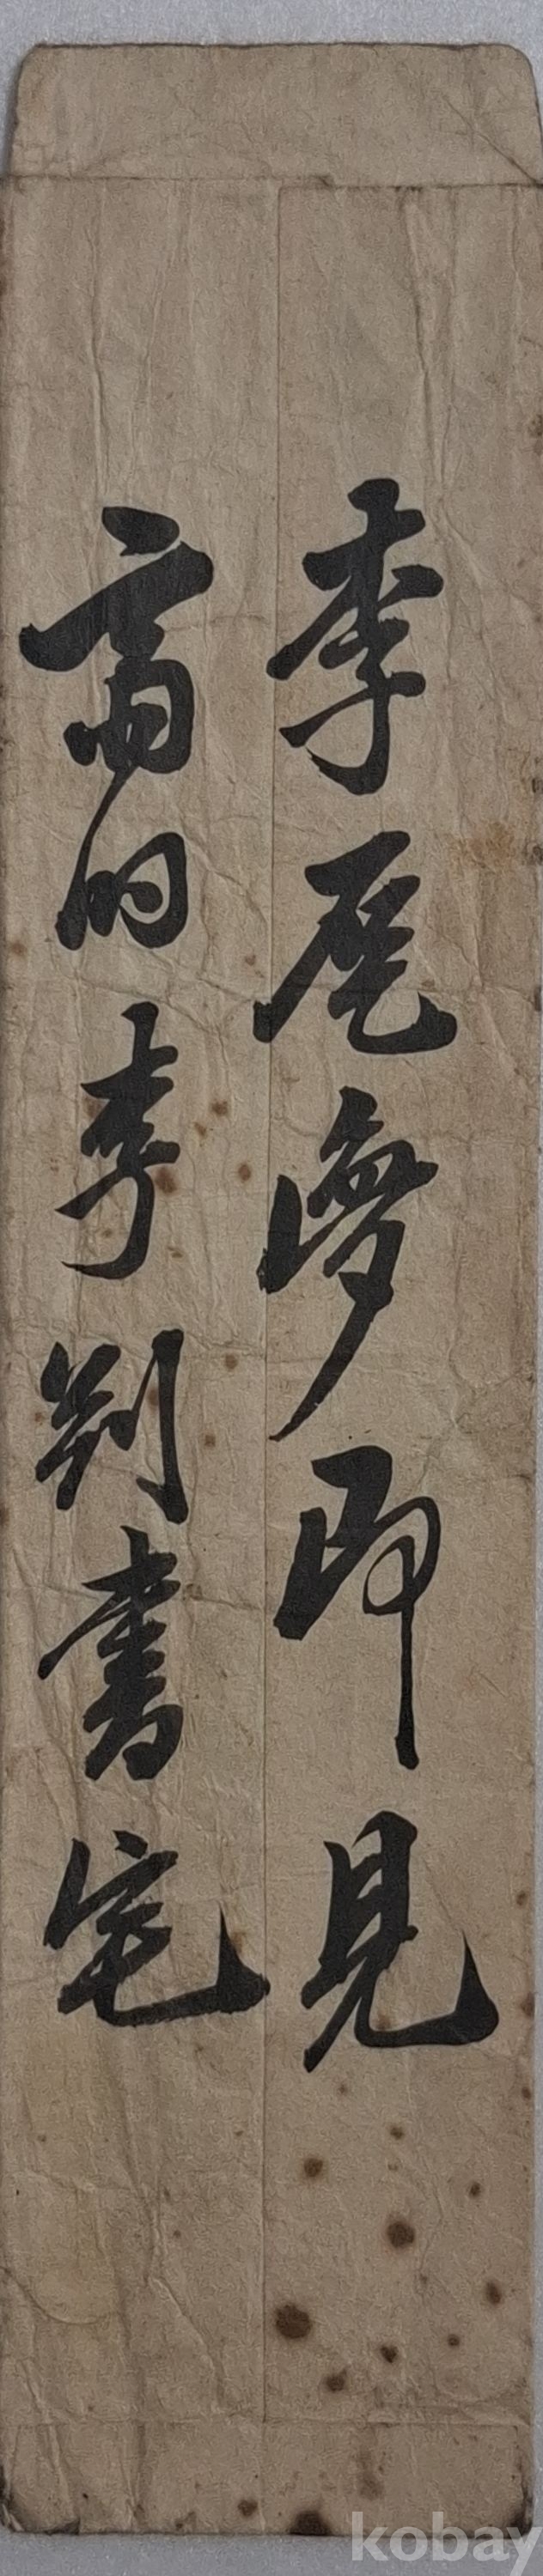 李殷夢即見
高明李判書宅
kobay